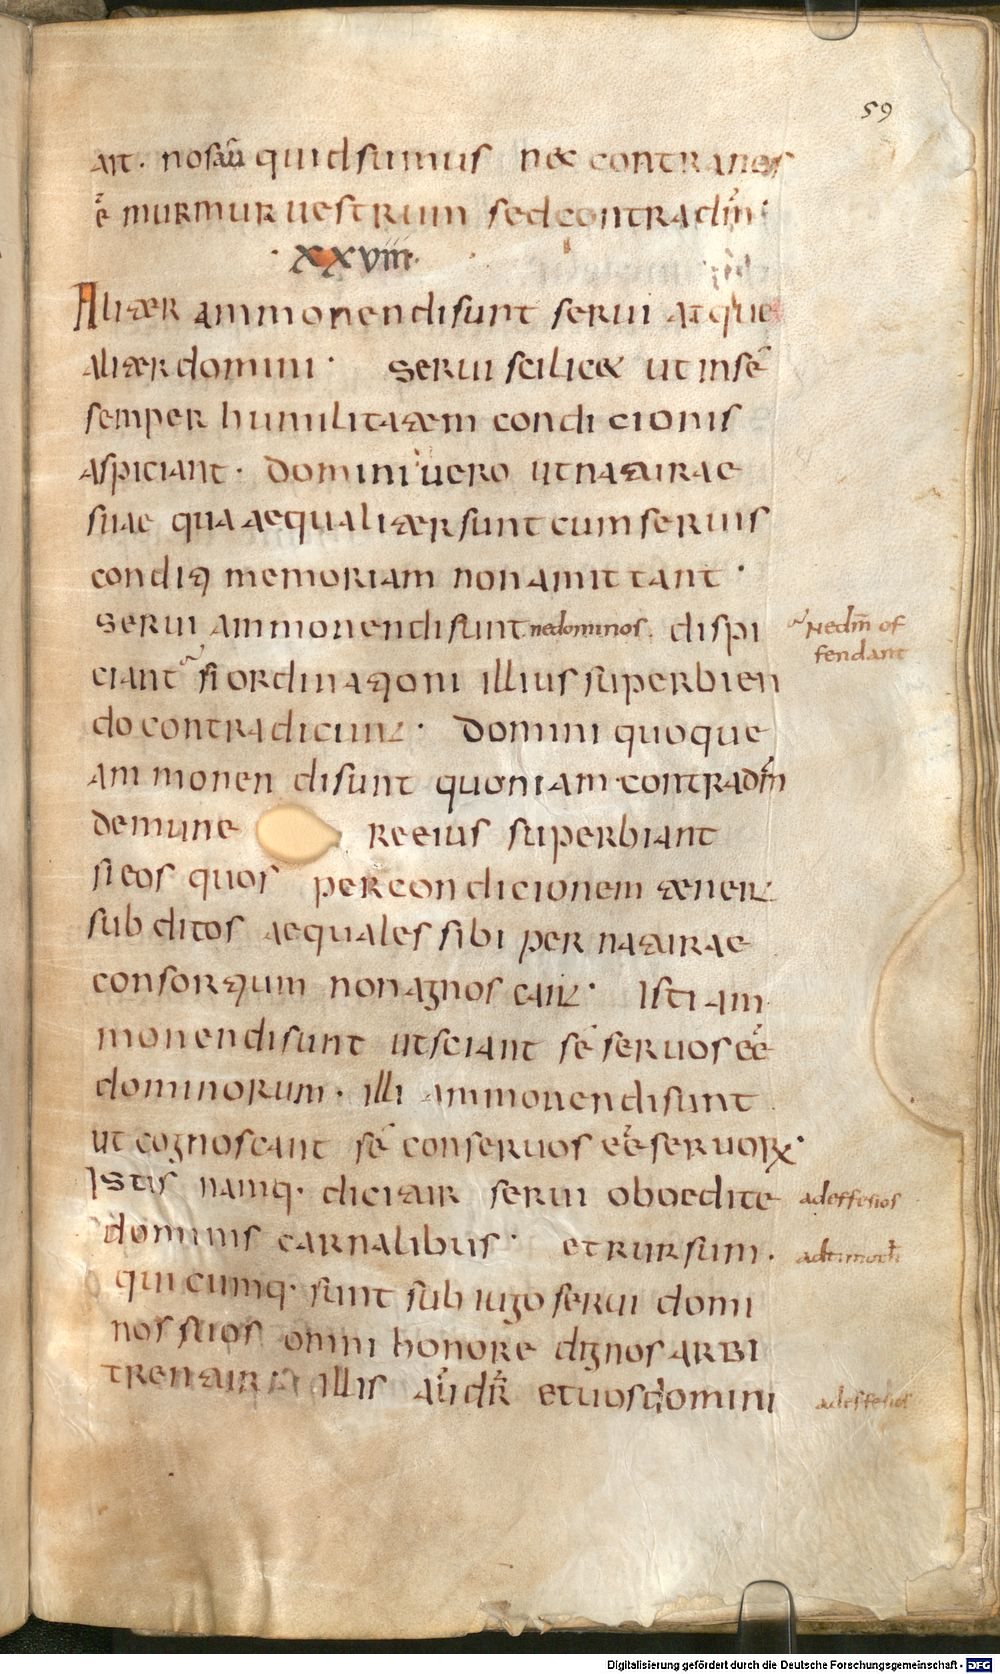 59
ait · nos aū quid sumus nec contra nos
ē murmur uestrum sed contra dm̄
· xxviii ·
Aliter ammonendi sunt serui atque
aliter domini · Serui scilicet ut in sē
semper humilitatem condicionis
aspiciant · Domini uero ut naturae
suae qua aequaliter sunt cum seruis
conditi memoriam non amittant ·
Serui ammonendi sunt ne dominos dispi
Ne dm̄ of
fendant
ciant si ordinationi illius superbien
do contradicunt · Domini quoque
ammonendi sunt quoniam contra dm̄
de mune re eius superbiant
si eos quos per condicionem tenent
subditos aequales sibi per naturae
consortium non agnoscant · Isti am
monendi sunt ut sciant sē seruos eē
dominorum · Illi ammonendi sunt
ut cognoscant sē conseruos eē seruorꝝ ·
Istis namq· dicitur serui oboedite
ad effesios
dominis carnalibus · et rursum ·
ad timoth̄
quicumq· sunt sub iugo serui domi
nos suos omni honore dignos arbi
trentur illis aū dr̄ et uos domini
ad effesios
Digitalisierung gefördert durch die Deutsche Forschungsgemeinschaft - DFG